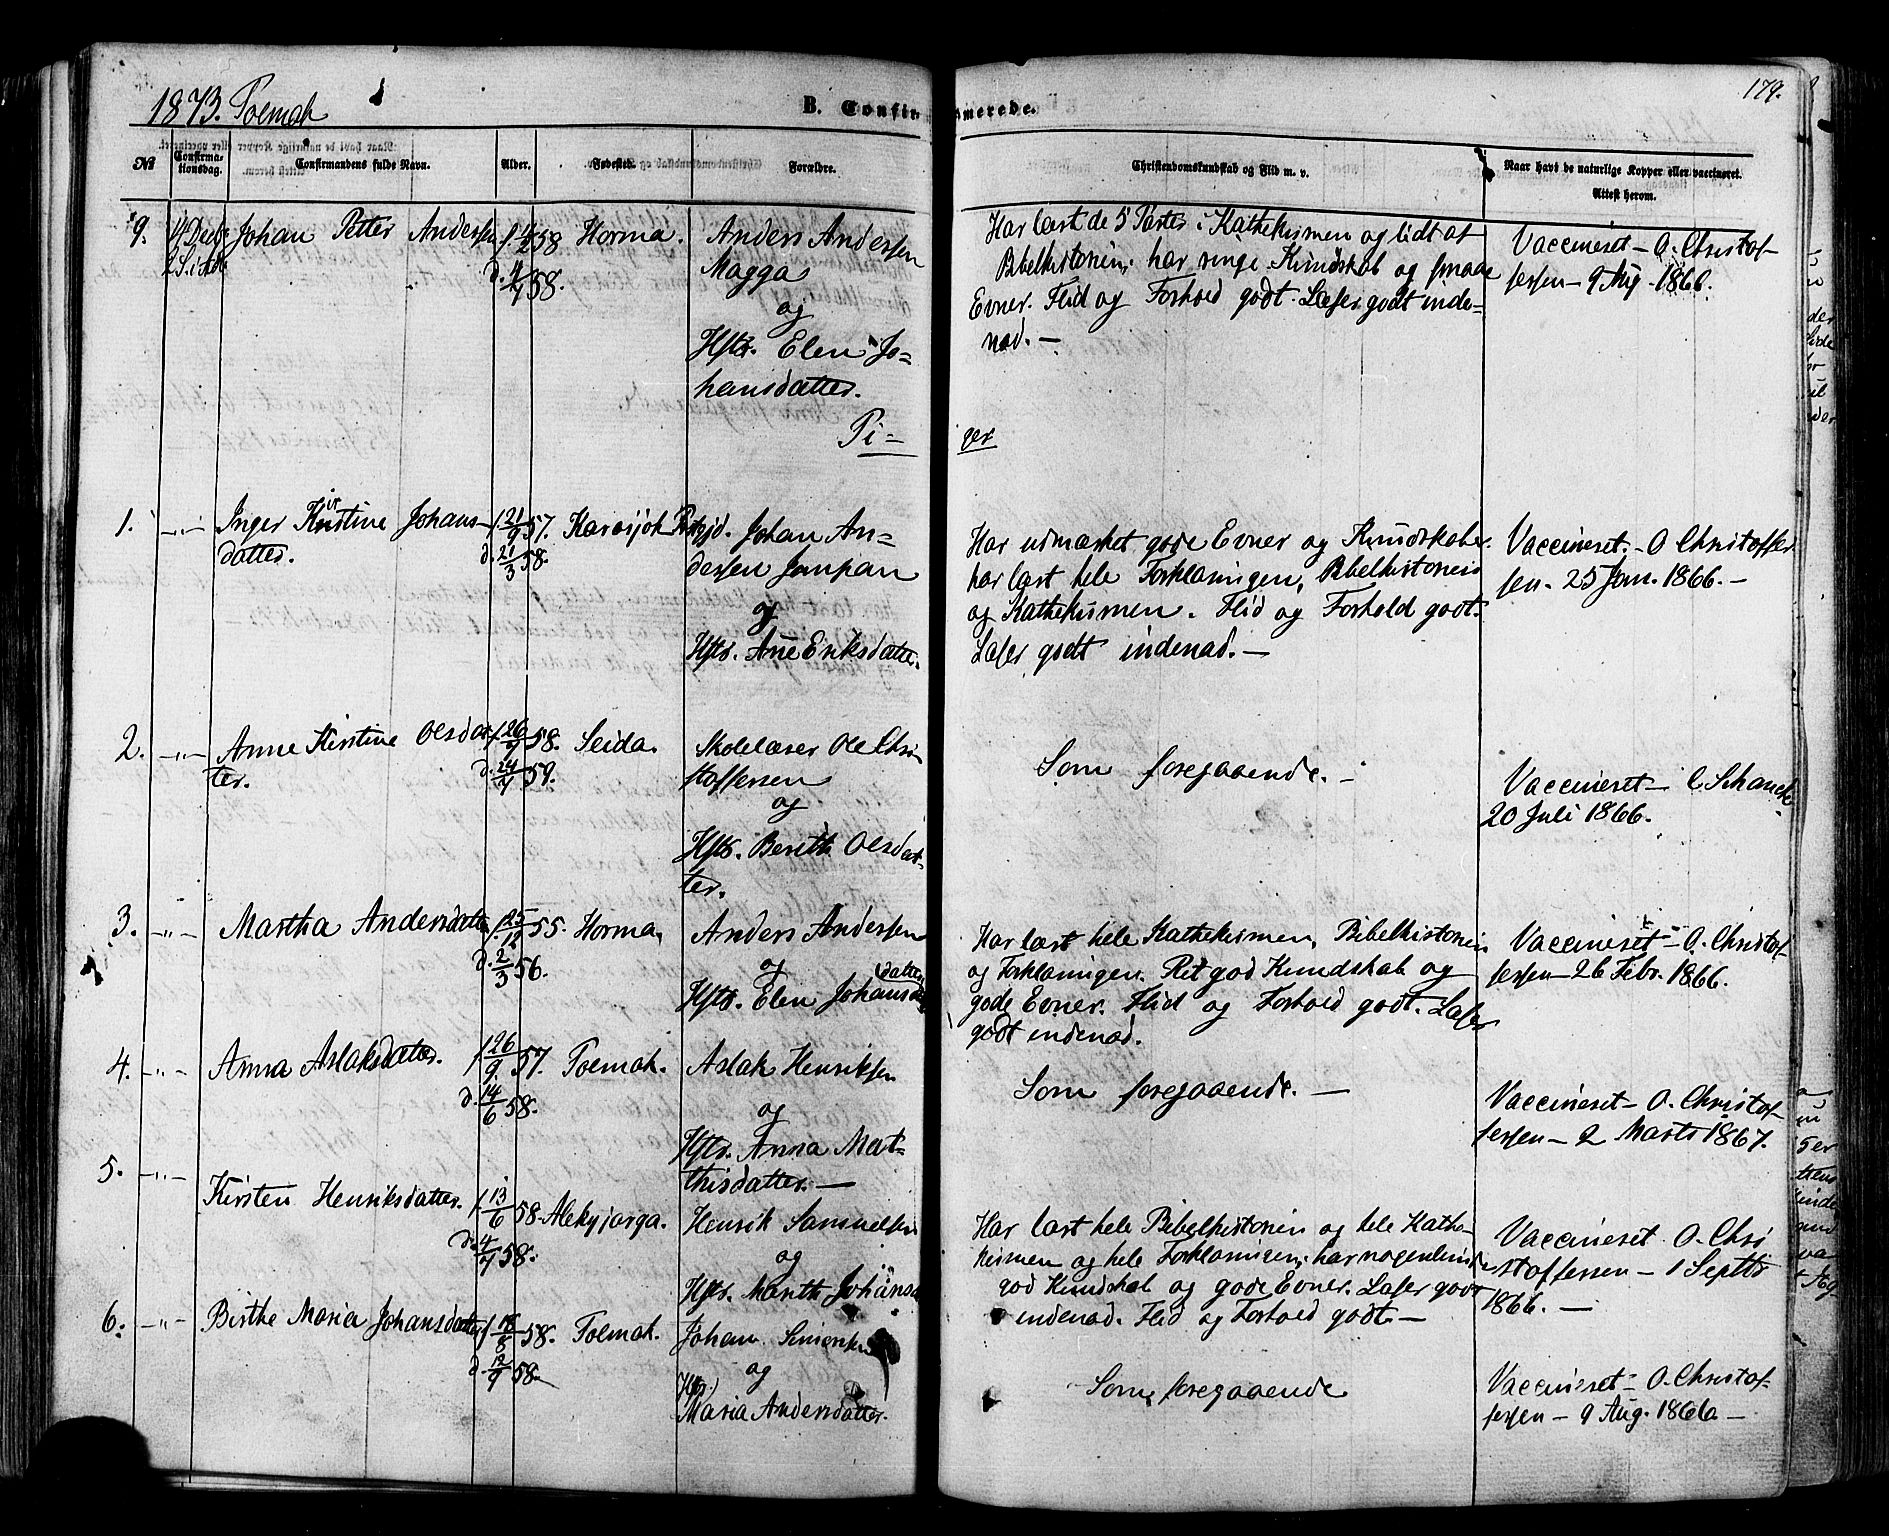 1873. Polmak
B. Confirmerede.
179.
No
Confirma-
tionsdag.
Confirmandens fulde Navn.
Alder.
Fødested.
Forældre.
Christendomskundskab og Flid m. v.
Naar havt de naturlige Kopper eller vaccineret.
Attest herom.
9.
Johan Petter Andersen
58
58.
Horma.
Anders Andersen
Magga
og
Hstr. Elen Jo-
hansdatter.
Har læst de 5 Parter i Kathekismen og lidt af
Bibelhistorien; har ringe Kundskab og smaae
Evner. Flid og Forhold godt. Læser godt inde-
nad. —
Vaccineret — O. Christof-
fersen — 9 Aug. 1866.
Pi-
ger
1.
—"—
Inger Kirstine Johans-
datter.
f. 21/9 57.
d. 21/3 58.
Karasjok
Johan An-
dersen Jompan
og
Hstr. Ane Eriksdatter.
Har udmærket gode Evner og Kundskaber.
har læst hele Forklaringen, Bibelhistorien
og Kathekismen. Flid og Forhold godt.
Læser godt indenad. —
Vaccineret. — O Christoffer-
sen. 25 Jan. 1866. —
2.
—"—
Anne Kirstine Olsdat-
ter.
58.
59.
Seida.
Skolelærer Ole Chri-
stoffersen
og
Hstr. Berith Olsdat-
ter.
Som foregaaende. —
Vaccineret — C. Schanck
20 Juli 1866.
3.
—"—
Martha Andersdatter
f. 25/12 55.
d. 2/3 56.
Horma.
Anders Andersen
og
Hstr. Elen Johansdatter
Har læst hele Kathekismen, Bibelhistorien
og Forklaringen. Ret god Kundskab og
gode Evner. Flid og Forhold godt. Læser
godt indenad.
Vaccineret — O. Christof-
fersen — 26 Febr. 1866.
4.
—"—
Anna Aslaksdatter.
f. 26/9. 57.
d. 14/6 58.
Polmak.
Aslak Henriksen
og
Hstr. Anna Mat-
thisdatter. —
Som foregaaende. —
Vaccineret — O. Christof-
fersen — 2 Marts 1867.
5.
—"—
Kirsten Henriksdatter.
f. 13/6 58.
58.
Alekjarga.
Henrik Samuelsen
og
Hstr. Marith Johansd
Har læst hele Bibelhistorien og hele Kathe-
kismen og hele Forklaringen; har nogenlunde
god Kundskab og gode Evner. Læser godt
indenad. Flid og Forhold godt. —
Vaccineret O. Chri
stoffersen — 1 Septb
1866. —
6.
—"—
Birthe Maria Johansdatter
58.
58.
Polmak.
Johan
og
Hstr.
Maria Andersdatter.
Som foregaaende
Vaccineret — O. Christof-
fersen — 9 Aug. 1866 —